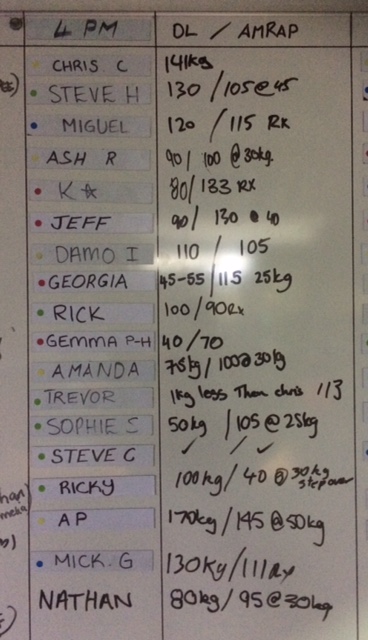 4 PM DL / AMRAP
CHRIS C 141kgs
STEVE H 130 / 105@45
MIGUEL 120 / 115 RX
ASH R 90 / 100 @ 30kg.
K☆ 80/133 RX
JEFF 90 / 130 @ 40
DAMO I 110 / 105
GEORGIA 45-55/115 25kg
RICK 100/90Rx
GEMMA P-H 40/70
AMANDA 75kg/100@30kg
TREVOR 1kg less Then chris 113
SOPHIE S 50kg / 105 @ 25kg
STEVE C ✓ / ✓
RICKY 100kg / 40 @ 30kg
step over
AP 170kg / 145 @ 50kg
MICK. G 130kg/111Rx
NATHAN 80kg / 95@30kg